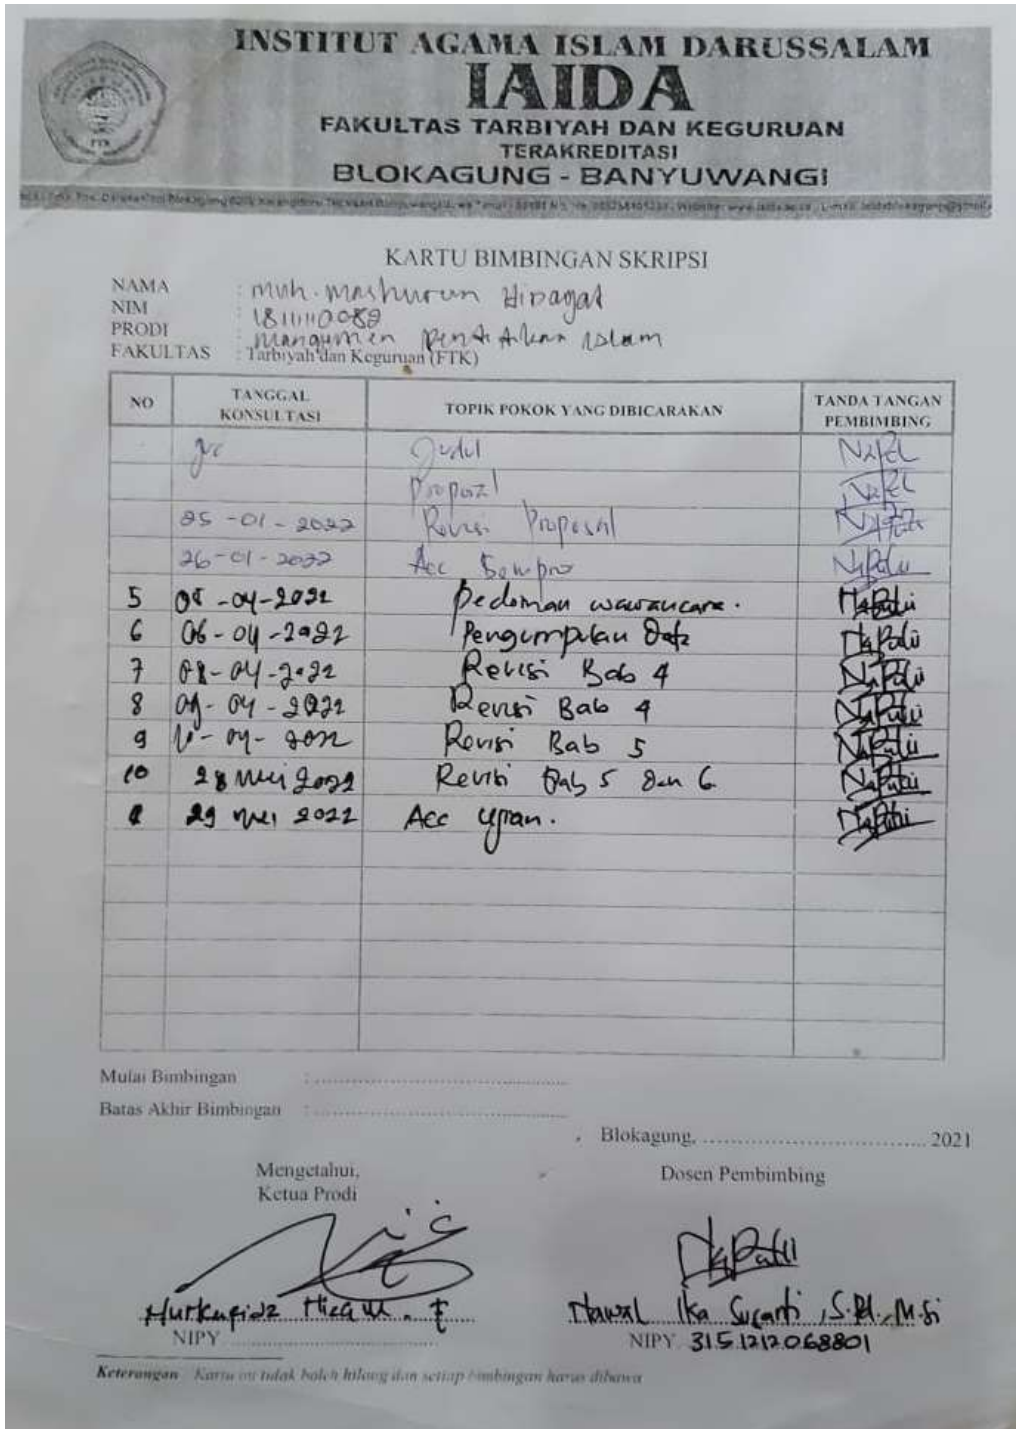 INSTITUT AGAMA ISLAM DARUSSALAM
IAIDA
FAKULTAS TARBIYAH DAN KEGURUAN
TERAKREDITASI
BLOKAGUNG - BANYUWANGI
KARTU BIMBINGAN SKRIPSI
NAMA : Muh.
NIM :
PRODI : Islam
FAKULTAS : Tarbiyah dan Keguruan (FTK)
NO TANGGAL KONSULTASI TOPIK POKOK YANG DIBICARAKAN TANDA TANGAN PEMBIMBING
Judul
Proposal
25-01-2022 Revisi Proposal
26-01-2022 Acc Sempro
5 05-04-2022 Pedoman wawancara.
6 06-04-2022 Pengumpulan Data
7 08-04-2022 Revisi Bab 4
8 09-04-2022 Revisi Bab 4
9 Revisi Bab 5
10 28 Mei 2022 Revisi Bab 5 dan 6
29 Mei 2022 Acc Ujian.
Mulai Bimbingan : ..........
Batas Akhir Bimbingan : ..........
Blokagung, .......... 2021
Mengetahui, Dosen Pembimbing
Ketua Prodi
Nawal Ika Susanti, S.Pd., M.Si
NIPY .......... NIPY 3151212068801
Keterangan Kartu ini tidak boleh hilang dan setiap bimbingan harus dibawa